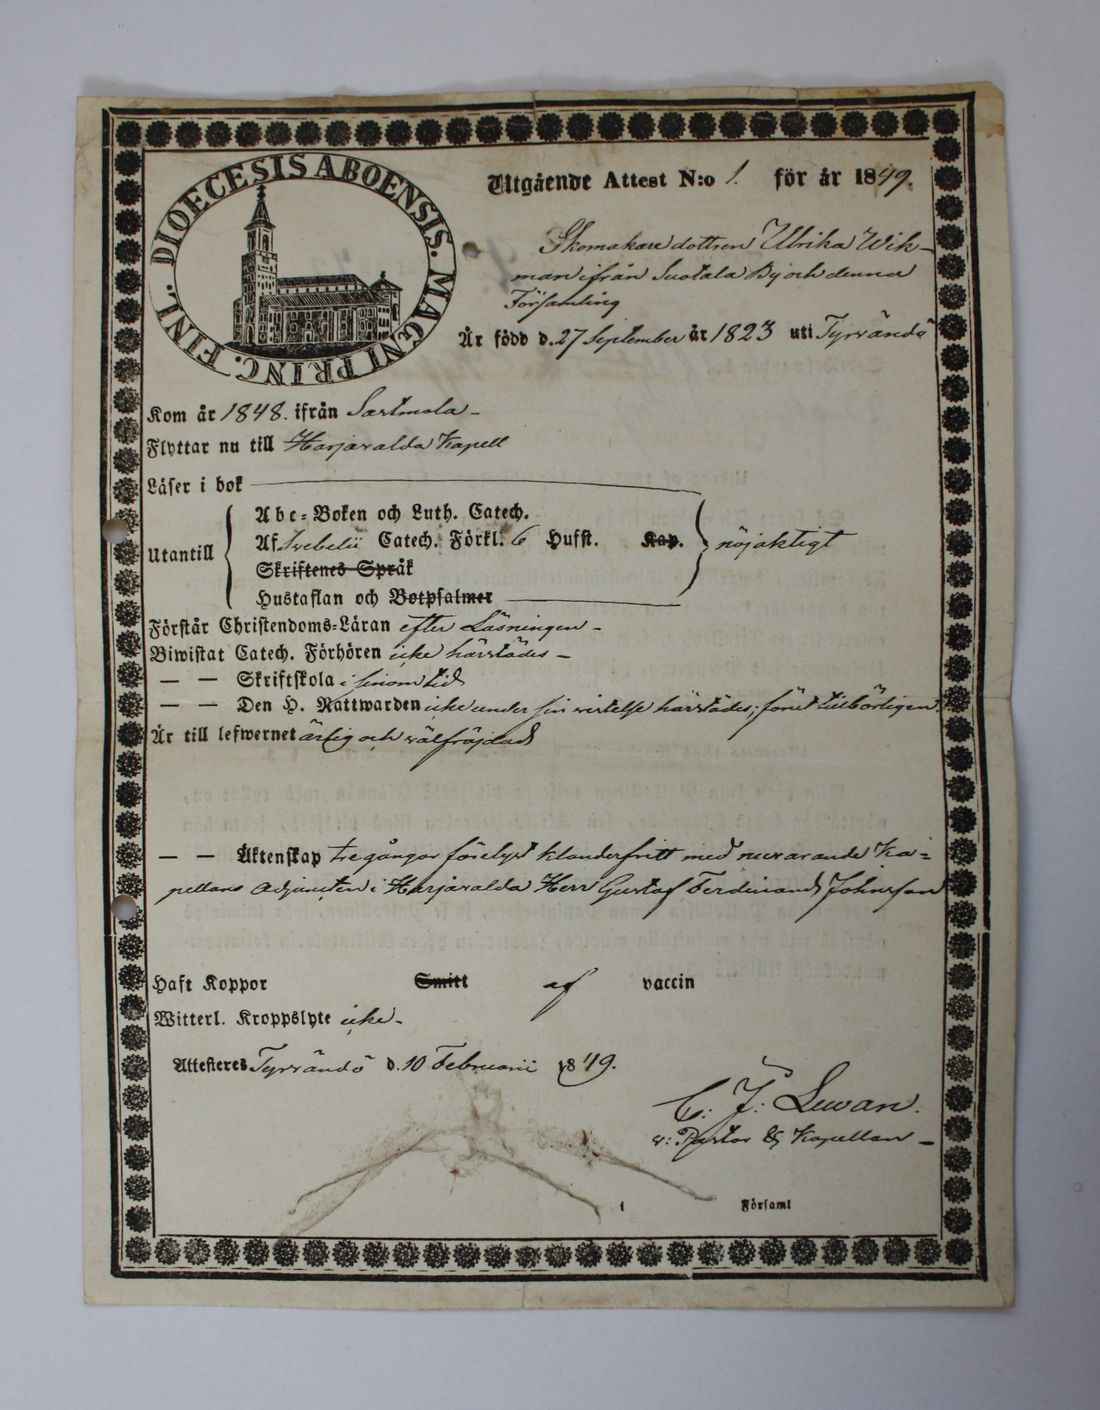 DIOECESIS ABOENSIS. MAGNI PRINC. FINL.
Utgående Attest N:o 1. för år 1849.
Skomakare dottren Ulrika Wik-
man ifrån Suotala By och denna
Församling
Är född d. 27 September år 1823 uti Tyrvändö
Kom år 1848. ifrån Sastmola -
Flyttar nu till Harjavalda Kapell
Läser i bok
Utantill
Abc-Boken och Luth. Catech.
Af Svebelii Catech. Förkl. 6 Hufst. Kap. nöjaktigt
Skriftenes Språk
Hustaflan och Botpsalmer
Förstår Christendoms-Läran efter Läsningen -
Biwistat Catech. Förhören icke härstädes -
— — Skriftskola i sinom tid
— — Den H. Nattwarden icke under sin vistelse härstädes, förut tillbörligen
Är till lefwernet ärlig och välfräjdad
— — Äktenskap tre gångor förelyst klanderfritt med nuvarande Ka-
pellans Adjuncten i Harjavalda Herr Gustaf Ferdinand Johnsson
Haft Koppor Smitt af vaccin
Witterl. Kroppslyte icke -
Attesteres Tyrvändö d. 10 Februarii 1849.
C: F: Lewan.
v: Pastor & Kapellan -
i Församl